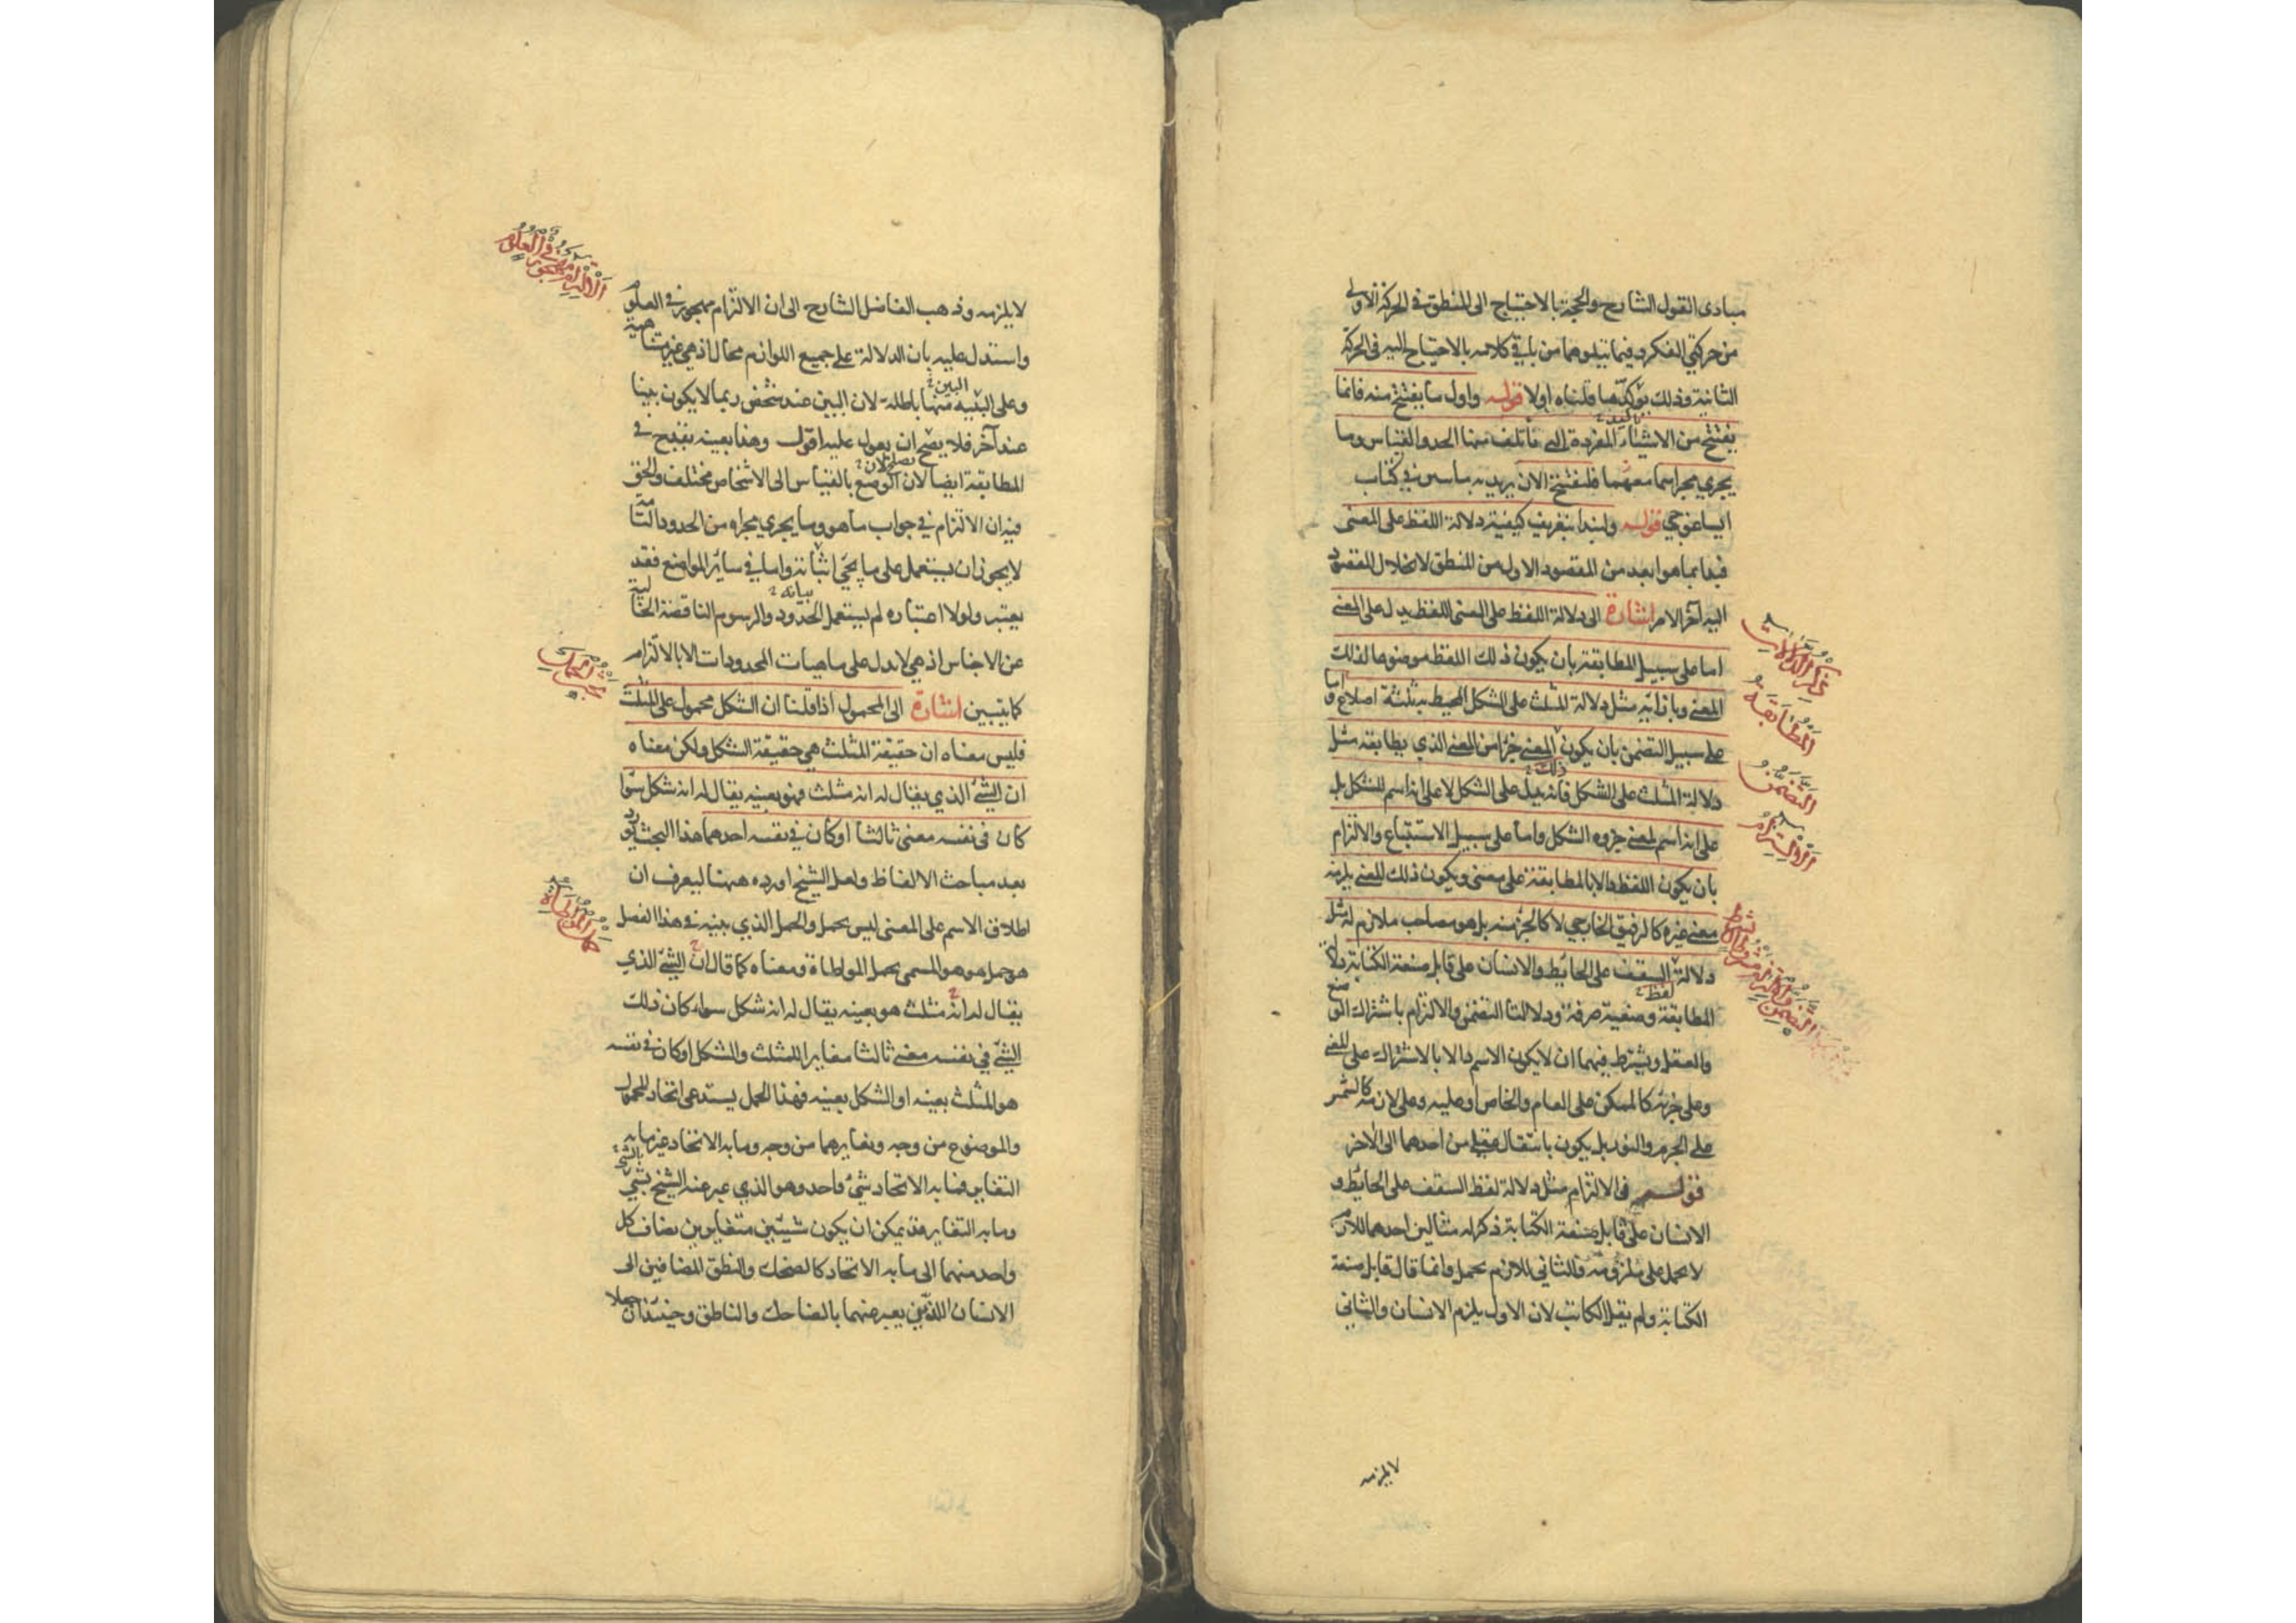 مبادى القول الشارح والحجة بالاحتياج الى المنطق فى الحركة الاولى
من حركتى الفكر وفيما يتلوهما من باقى كلامه بالاحتياج اليه فى الحركة
الثانية وذلك يؤكد ما قلناه اولا قوله واول ما يفتتح منه فانما
يفتتح من الاشياء المفردة التى تأتلف منها الحد والقياس وما
يجرى مجراهما فلنفتتح الان يريد به ماسيس فى كتاب
ايساغوجى قوله ولنبدا بتعريف كيفية دلالة اللفظ على المعنى
فبدأ بما هو ابعد من المقصود الاول من المنطق لانحلال المقصود
اليه آخر الامر اشارة الى دلالة اللفظ على المعنى اللفظ يدل على المعنى
اما على سبيل المطابقة بان يكون ذلك اللفظ موضوعا لذلك
المعنى وبازائه مثل دلالة المثلث على الشكل المحيط به ثلثة اضلاع واما
على سبيل التضمن بان يكون المعنى جزءا من المعنى الذى يطابقه مثل
ذلك
دلالة المثلث على الشكل فانه يدل على الشكل لا على انه اسم للشكل بل
على انه اسم لمعنى جزوه الشكل واما على سبيل الاستتباع والالتزام
بان يكون اللفظ دالا بالمطابقة على معنى ويكون ذلك المعنى يلزمه
معنى غيره كالرفيق الخارجى لا كالجزء منه بل هو مصاحب ملازم له مثل
دلالة السقف على الحايط والانسان على قابل صنعة الكتابة دلالة
لفظ
المطابقة وضعية صرفة ودلالتا التضمن والالتزام باشتراك الوضع
والعقل ويشترط فيهما ان لايكون الاسم دالا بالاشتراك على المعنى
وعلى جزئه كالممكن على العام والخاص او عليه وعلى لازمه كالشمس
على الجرم والنور بل يكون بانتقال عقلى من احدهما الى الاخر
قوله فى الالتزام مثل دلالة لفظ السقف على الحايط و
الانسان على قابل صنعة الكتابة ذكر له مثالين احدهما لللازم
لا يحمل على ملزومه والثانى للازم يحمل وانما قال قابل صنعة
الكتابة ولم يقل الكاتب لان الاول يلزم الانسان والثانى
لايلزمه
ذكر الدلالات
المطابقة
التضمن
الالتزام
لايلزمه وذهب الفاضل الشارح الى ان الالتزام مهجور فى العلوم
واستدل عليه بان الدلالة على جميع اللوازم محال اذ هى غير متناهية
البين
وعلى البينة منها باطلة لان البين عند شخص ربما لا يكون بينا
عند آخر فلا يصح ان يعول عليه اقول وهذا بعينه يقدح فى
المطابقة ايضا لان الوضع بالقياس الى الاشخاص مختلف والحق
فيه ان الالتزام فى جواب ماهو وما يجرى مجراه من الحدود التامة
لايجوز ان يستعمل على ما يجئ اثباته واما فى ساير المواضع فقد
بيانه
يعتبر ولولا اعتباره لم يستعمل الحدود والرسوم الناقصة الخالية
عن الاجناس اذ هى لا تدل على ماهيات المحدودات الا بالالتزام
كما يتبين اشارة الى المحمول اذا قلنا ان الشكل محمول على المثلث
فليس معناه ان حقيقة المثلث هى حقيقة الشكل ولكن معناه
ان الشئ الذى يقال له انه مثلث فهو بعينه يقال له انه شكل سوا
كان فى نفسه معنى ثالثا او كان فى نفسه احدهما هذا البحث يورد
بعد مباحث الالفاظ ولعل الشيخ اورده ههنا ليعرف ان
اطلاق الاسم على المعنى ليس بحمل والحمل الذى بينه فى هذا الفصل
هو حمل هو هو المسمى بحمل المواطاة ومعناه كما قال ان الشئ الذى
يقال له انه مثلث هو بعينه يقال له انه شكل سواء كان ذلك
الشئ فى نفسه معنى ثالثا مغايرا للمثلث والشكل او كان فى نفسه
هو المثلث بعينه او الشكل بعينه فهذا الحمل يستدعى اتحاد المحمول
والموضوع من وجه وتغايرهما من وجه وما به الاتحاد غير ما به
التغاير فما به الاتحاد شئ واحد وهو الذى عبر عنه الشيخ بالشئ
وما به التغاير قد يمكن ان يكون شيئين متغايرين يضاف كل
واحد منهما الى ما به الاتحاد كالضحك والنطق المضافين الى
الانسان اللذين يعبر عنهما بالضاحك والناطق وحينئذ ان جعلا
الالتزام مهجور فى العلوم
حمل المواطاة